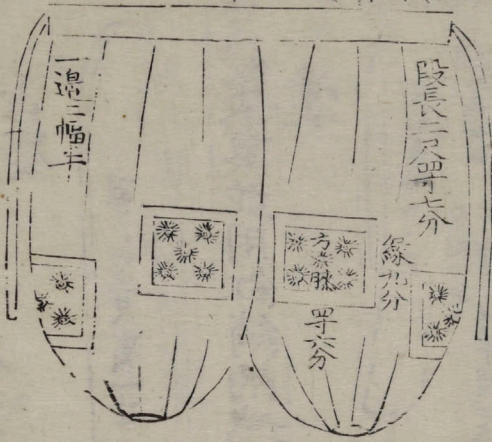 段長二尺四寸七分
緣九分
方
脉
四寸六分
一邊三幅